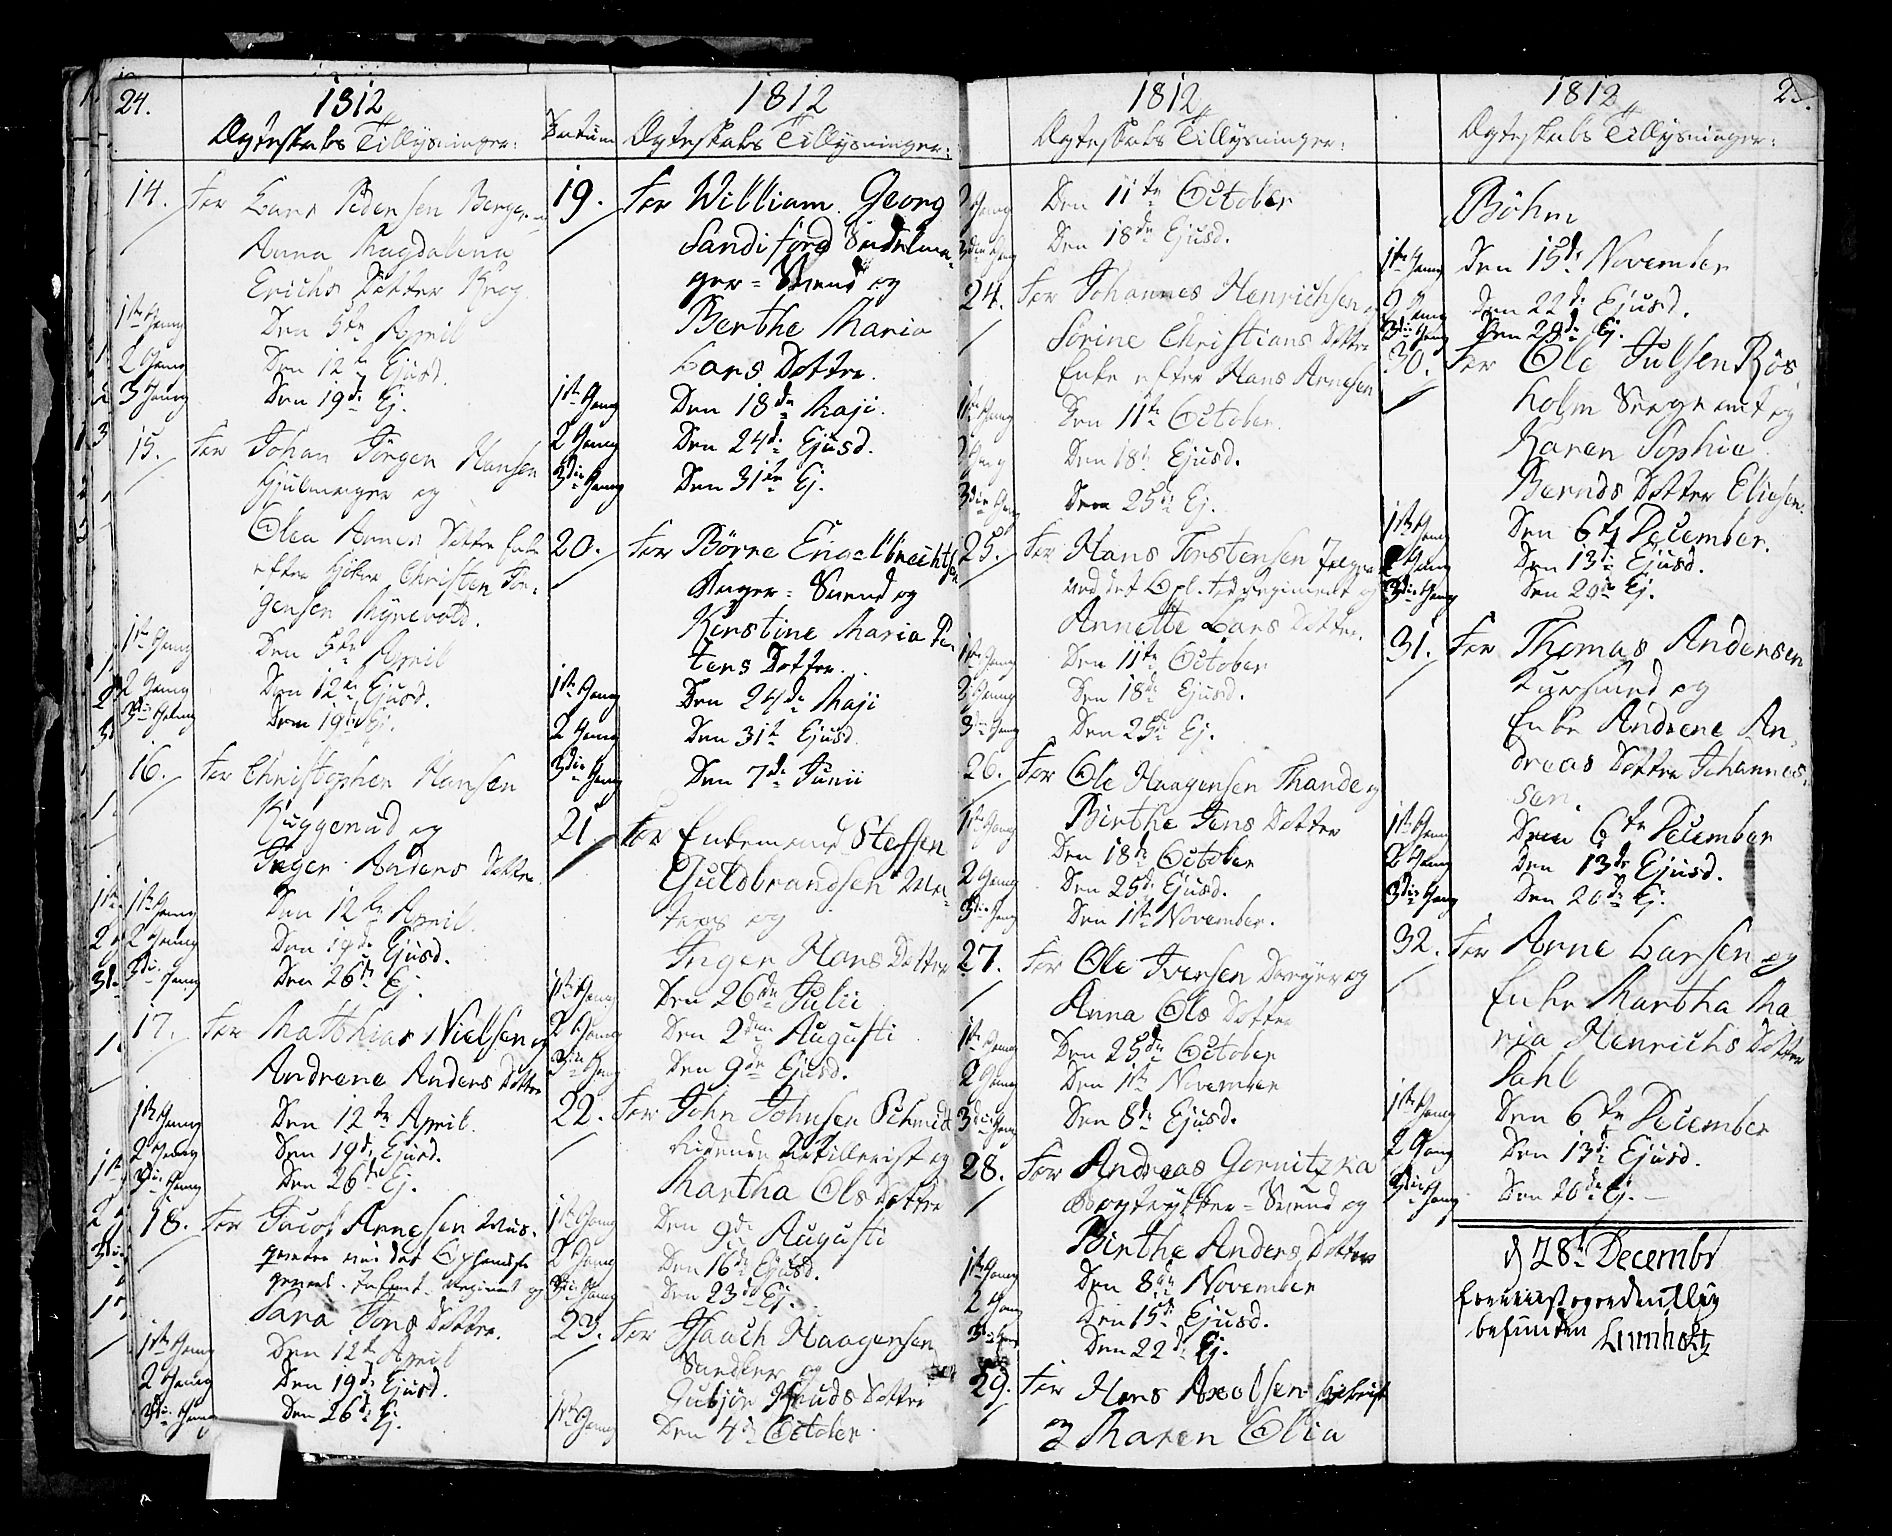 24.
1812
Ægteskabs Tillysninger:
14. For Lars Pedersen Berger og
Anna Magdalena
Erichs Datter Krog
1ste Gang Den 5te April
2 Gang Den 12te Ejusd.
3 Gang Den 19de Ej.
15. For Johan Jörgen Hansen
Hjulmager og
Olea Annes Datter Enke
efter Christen Jör-
gensen
1ste Gang Den 5te April
2 Gang Den 12te Ejusd.
3die Gang Den 19de Ej.
16. For Christopher Hansen
Ruggerud og
Inger Anders Datter
1ste Gang Den 12te April.
2 Gang Den 19de Ejusd.
3die Gang Den 26de Ej.
17. For Matthias Nielsen og
Andrene Anders Datter
1ste Gang Den 12te April.
2 Gang Den 19de Ejusd.
3die Gang Den 26de Ej.
18. For Jacob Arnesen Mus-
queteer ved det Oplandske
Infant. Regiment og
Sara Jons Datter.
1ste Gang Den 12te April
2 Gang Den 19de Ejusd.
3die Gang Den 26de Ej.
1812
Datum Ægteskabs Tillysninger:
19. For William Georg
Sandiford Sadelma-
ger-Svend og
Berthe Maria
Lars Datter.
1ste Gang Den 18de Maji.
2 Gang Den 24de Ejusd.
3die Gang Den 31te Ej.
20. For Börre Engelbrechtsen
Bager-Svend og
Kirstine Maria Pe-
ters Datter.
1ste Gang Den 24de Maji
2 Gang Den 31te Ejusd
3die Gang Den 7de Junii
21 For Enkemand Steffen
Guldbrandsen
og
Inger Hans Datter
1ste Gang Den 26de Julii
2 Gang Den 2den Augusti
3die Gang Den 9de Ejusd.
22. For John Johnsen Schmidt
Ridende Artillerist og
Martha Ols Datter
1ste Gang Den 9de Augusti
2 Gang Den 16de Ejusd.
3die Gang Den 23de Ej.
23. For Isaach Haagensen
og
Gubjör Knuds Datter
1ste Gang Den 4de October.
1812
Ægteskabs Tillysninger:
2 Gang Den 11te October
3die Gang Den 18de Ejusd.
24. For Johannes Henrichsen og
Sörine Christians Datter
Enke efter Hans Arnesen
1ste Gang Den 11te October.
2 Gang Den 18de Ejusd.
3die Gang Den 25de Ej.
25. For Hans Torstensen
ved det Opl. Inf. regiment og
Annette Lars Datter.
1ste Gang Den 11te October
2 Gang Den 18de Ejusd.
3die Gang Den 25de Ej.
26. For Ole Haagensen Thande og
Birthe Jens Datter
1ste Gang Den 18de October
2 Gang Den 25de Ejusd.
3die Gang Den 1ste November.
27. For Ole Iversen og
Anna Ols Datter
1ste Gang Den 25de October
2 Gang Den 1ste November
3die Gang Den 8de Ejusd.
28. For Andreas Gornitzka
Bogtrykker-Svend og
Birthe Anders Datter
1ste Gang Den 8de November
2 Gang Den 15de Ejusd.
3die Gang Den 22de Ej.
29. For Hans Axelsen
og Maren Olia
1812
25.
Ægteskabs Tillysninger:
Böhm
1ste Gang Den 15de November
2 Gang Den 22de Ejusd.
3die Gang Den 29de Ej.
30. For Ole Julsen Rös-
holm og
Karen Sophie
Bernds Datter Eliesen.
1ste Gang Den 6te December.
2 Gang Den 13de Ejusd.
3die Gang Den 20de Ej.
31. For Thomas Andersen
og
Enke Andrene An-
dreas Datter Johannes-
sen.
1ste Gang Den 6te December
2 Gang Den 13de Ejusd.
3die Gang Den 20de Ej.
32. For Arne Larsen og
Enke Martha Ma
ria Henrichs Datter
Dahl
1ste Gang Den 6te December
2 Gang Den 13de Ejusd.
3die Gang Den 20de Ej.
d 28de Decembr
foreviist og ordentlig
befunden Lumholtz